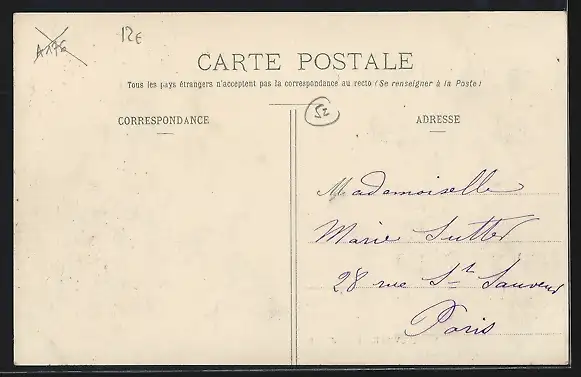 A176
12€
CARTE POSTALE
Tous les pays étrangers n'acceptent pas la correspondance au recto (Se renseigner à la Poste)
52
CORRESPONDANCE
ADRESSE
Mademoiselle
Marie Sutter
28 rue St Sauveur
Paris